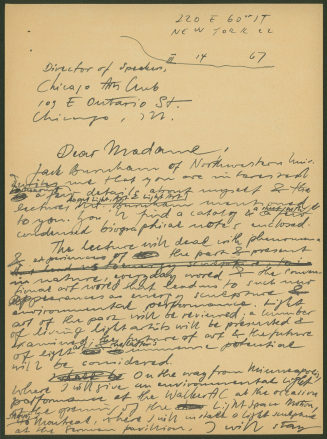 220 E 60th ST
NEW YORK 22
III 14 67
Director of Speakers,
Chicago Arts Club
109 E Ontario St.
Chicago, Ill.
Dear Madame,
Jack Burnham of Northwestern Univ.
writes me that you are interested
in a few details about myself & the
lecture that Burnham mentioned
to you. You'll find a catalog &
condensed biographical notes enclosed.
The lecture will deal with phenomena
& experiences of the past & present
in nature, everyday world & the
times art world that leads to such new
appearances as energy sculpture &
environmental performance. Light
art of the past will be reviewed, a number
of living light artists will be presented &
the future
of light as an immense potential
will be considered.
On the way from Minneapolis,
where I will give an environmental light
performance at the Walker AC at the occasion
of the opening of the Light Space Motion
to Montreal, where I will install a light sculpture
at the pavilion, I will stay